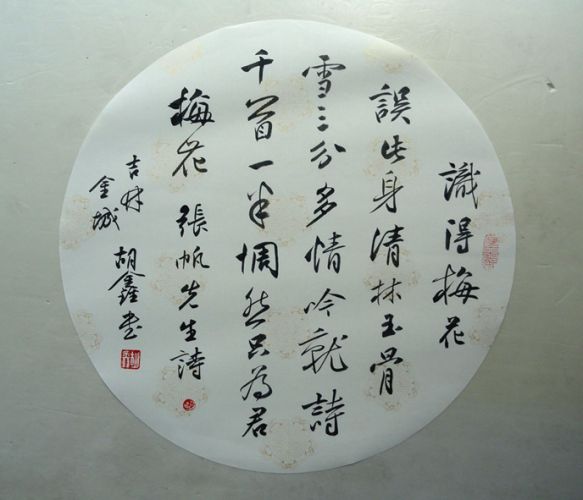 識得梅花
誤此身清林玉骨
雪三分多情吟就詩
千首一半惆然只為君
梅花 張帆先生詩
吉林
金城 胡鑫书